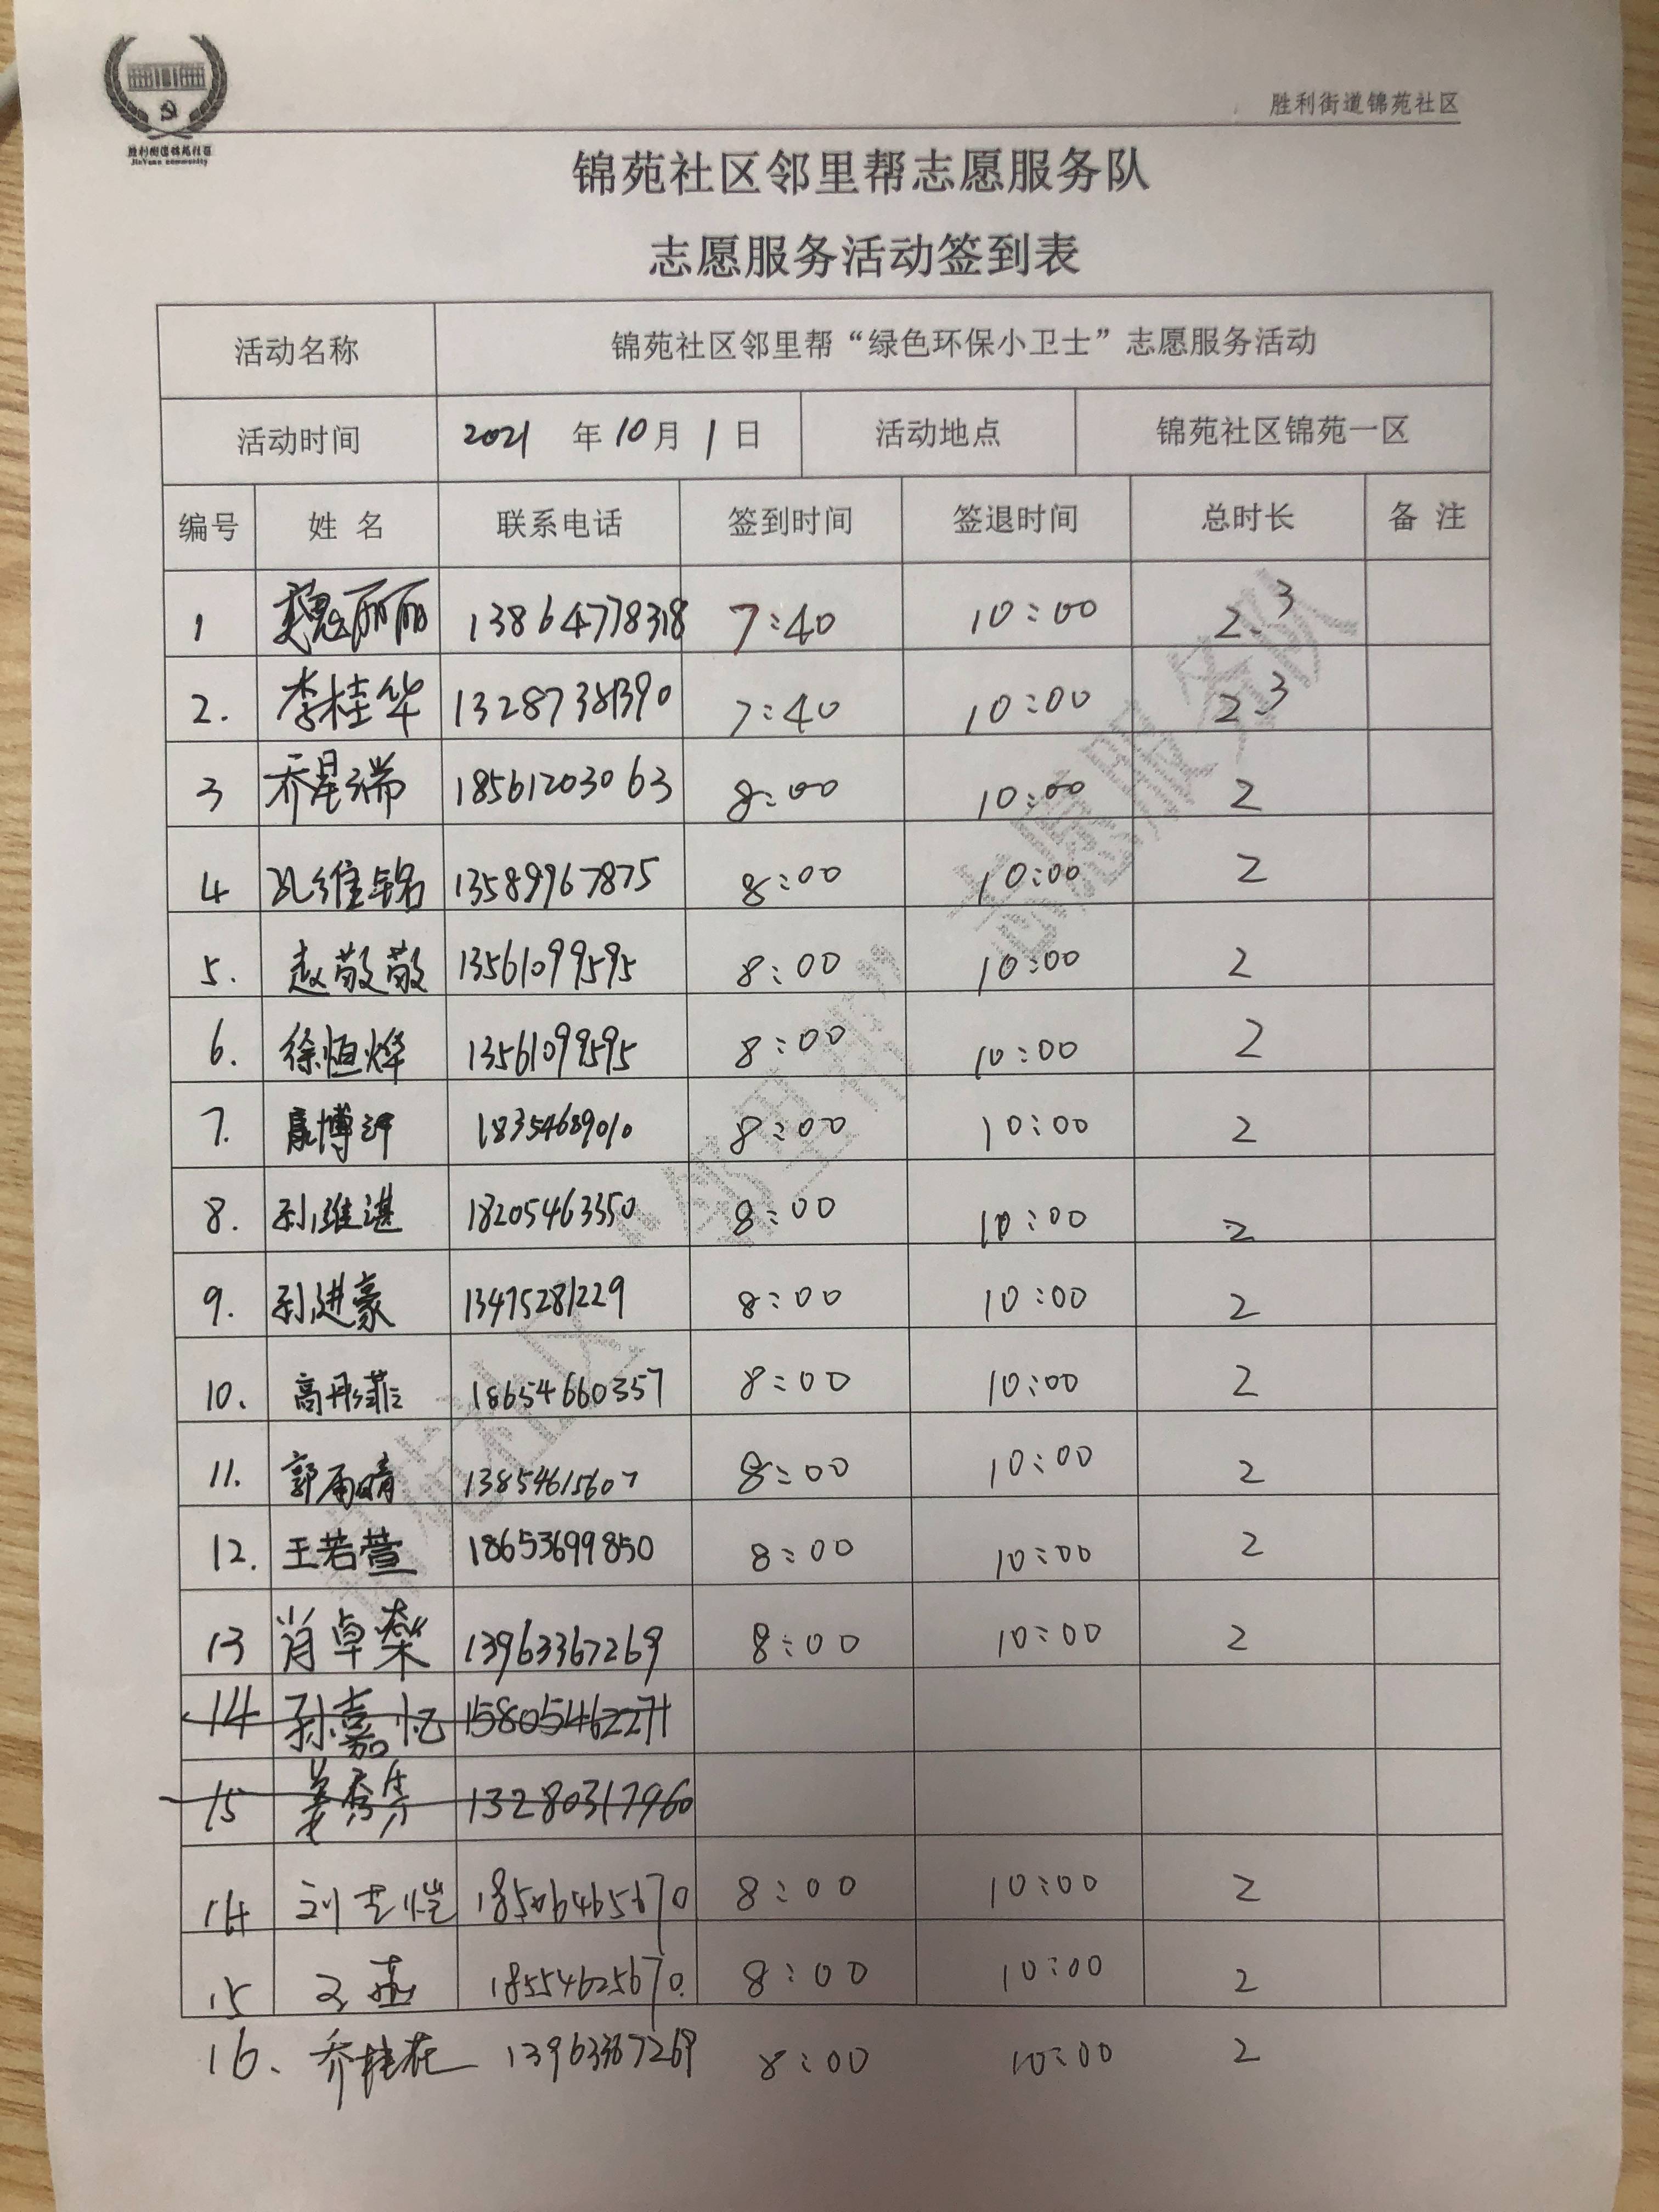 胜利街道锦苑社区
JinYuan community
胜利街道锦苑社区
锦苑社区邻里帮志愿服务队
志愿服务活动签到表
活动名称 锦苑社区邻里帮“绿色环保小卫士”志愿服务活动
活动时间 2021 年 10 月 1 日 活动地点 锦苑社区锦苑一区
编号 姓 名 联系电话 签到时间 签退时间 总时长 备 注
1 魏丽丽 13864778318 7:40 10:00 2.3
2. 李桂华 13287381390 7:40 10:00 2.3
3 乔星瑞 18561203063 8:00 10:00 2
4 孔维锦 13589967875 8:00 10:00 2
5. 赵敬敬 13561099595 8:00 10:00 2
6. 徐恒烨 13561099595 8:00 10:00 2
7. 博 18354689010 8:00 10:00 2
8. 孙维湛 18205463350 8:00 10:00 2
9. 孙进豪 13475281229 8:00 10:00 2
10. 高彤菲 18654660357 8:00 10:00 2
11. 郭雨晴 13854615607 8:00 10:00 2
12. 王若萱 18653699850 8:00 10:00 2
13 肖卓燊 13963367269 8:00 10:00 2
14 孙嘉忆 15805462271
15 姜秀集 13280317960
14 刘艺恺 18506465670 8:00 10:00 2
15 18554625670. 8:00 10:00 2
16. 乔桂花 13963367269 8:00 10:00 2
锦苑社区“邻里帮”志愿服务队